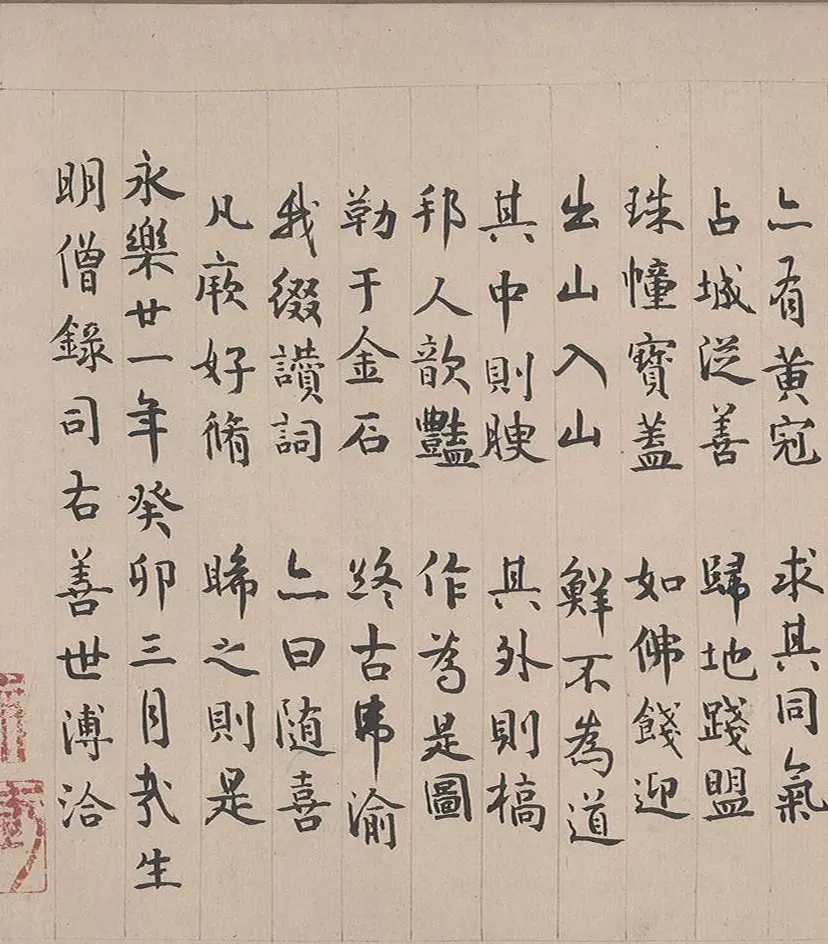 亦有黃冠 求其同氣
占城從善 歸地踐盟
珠幢寶蓋 如佛餞迎
出山入山 鮮不為道
其中則腴 其外則槁
邦人歆豔 作為是圖
勒于金石 終古弗渝
我綴讚詞 亦曰随喜
凡厥好脩 睎之則是
永樂廿一年癸卯三月哉生
明僧錄司右善世溥洽